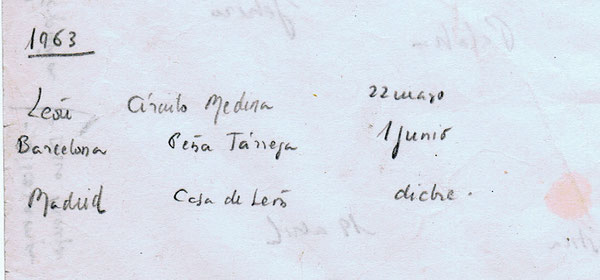 1963
León Círculo Medina 22 mayo
Barcelona Peña Tárrega 1 junio
Madrid Casa de León dicbre.